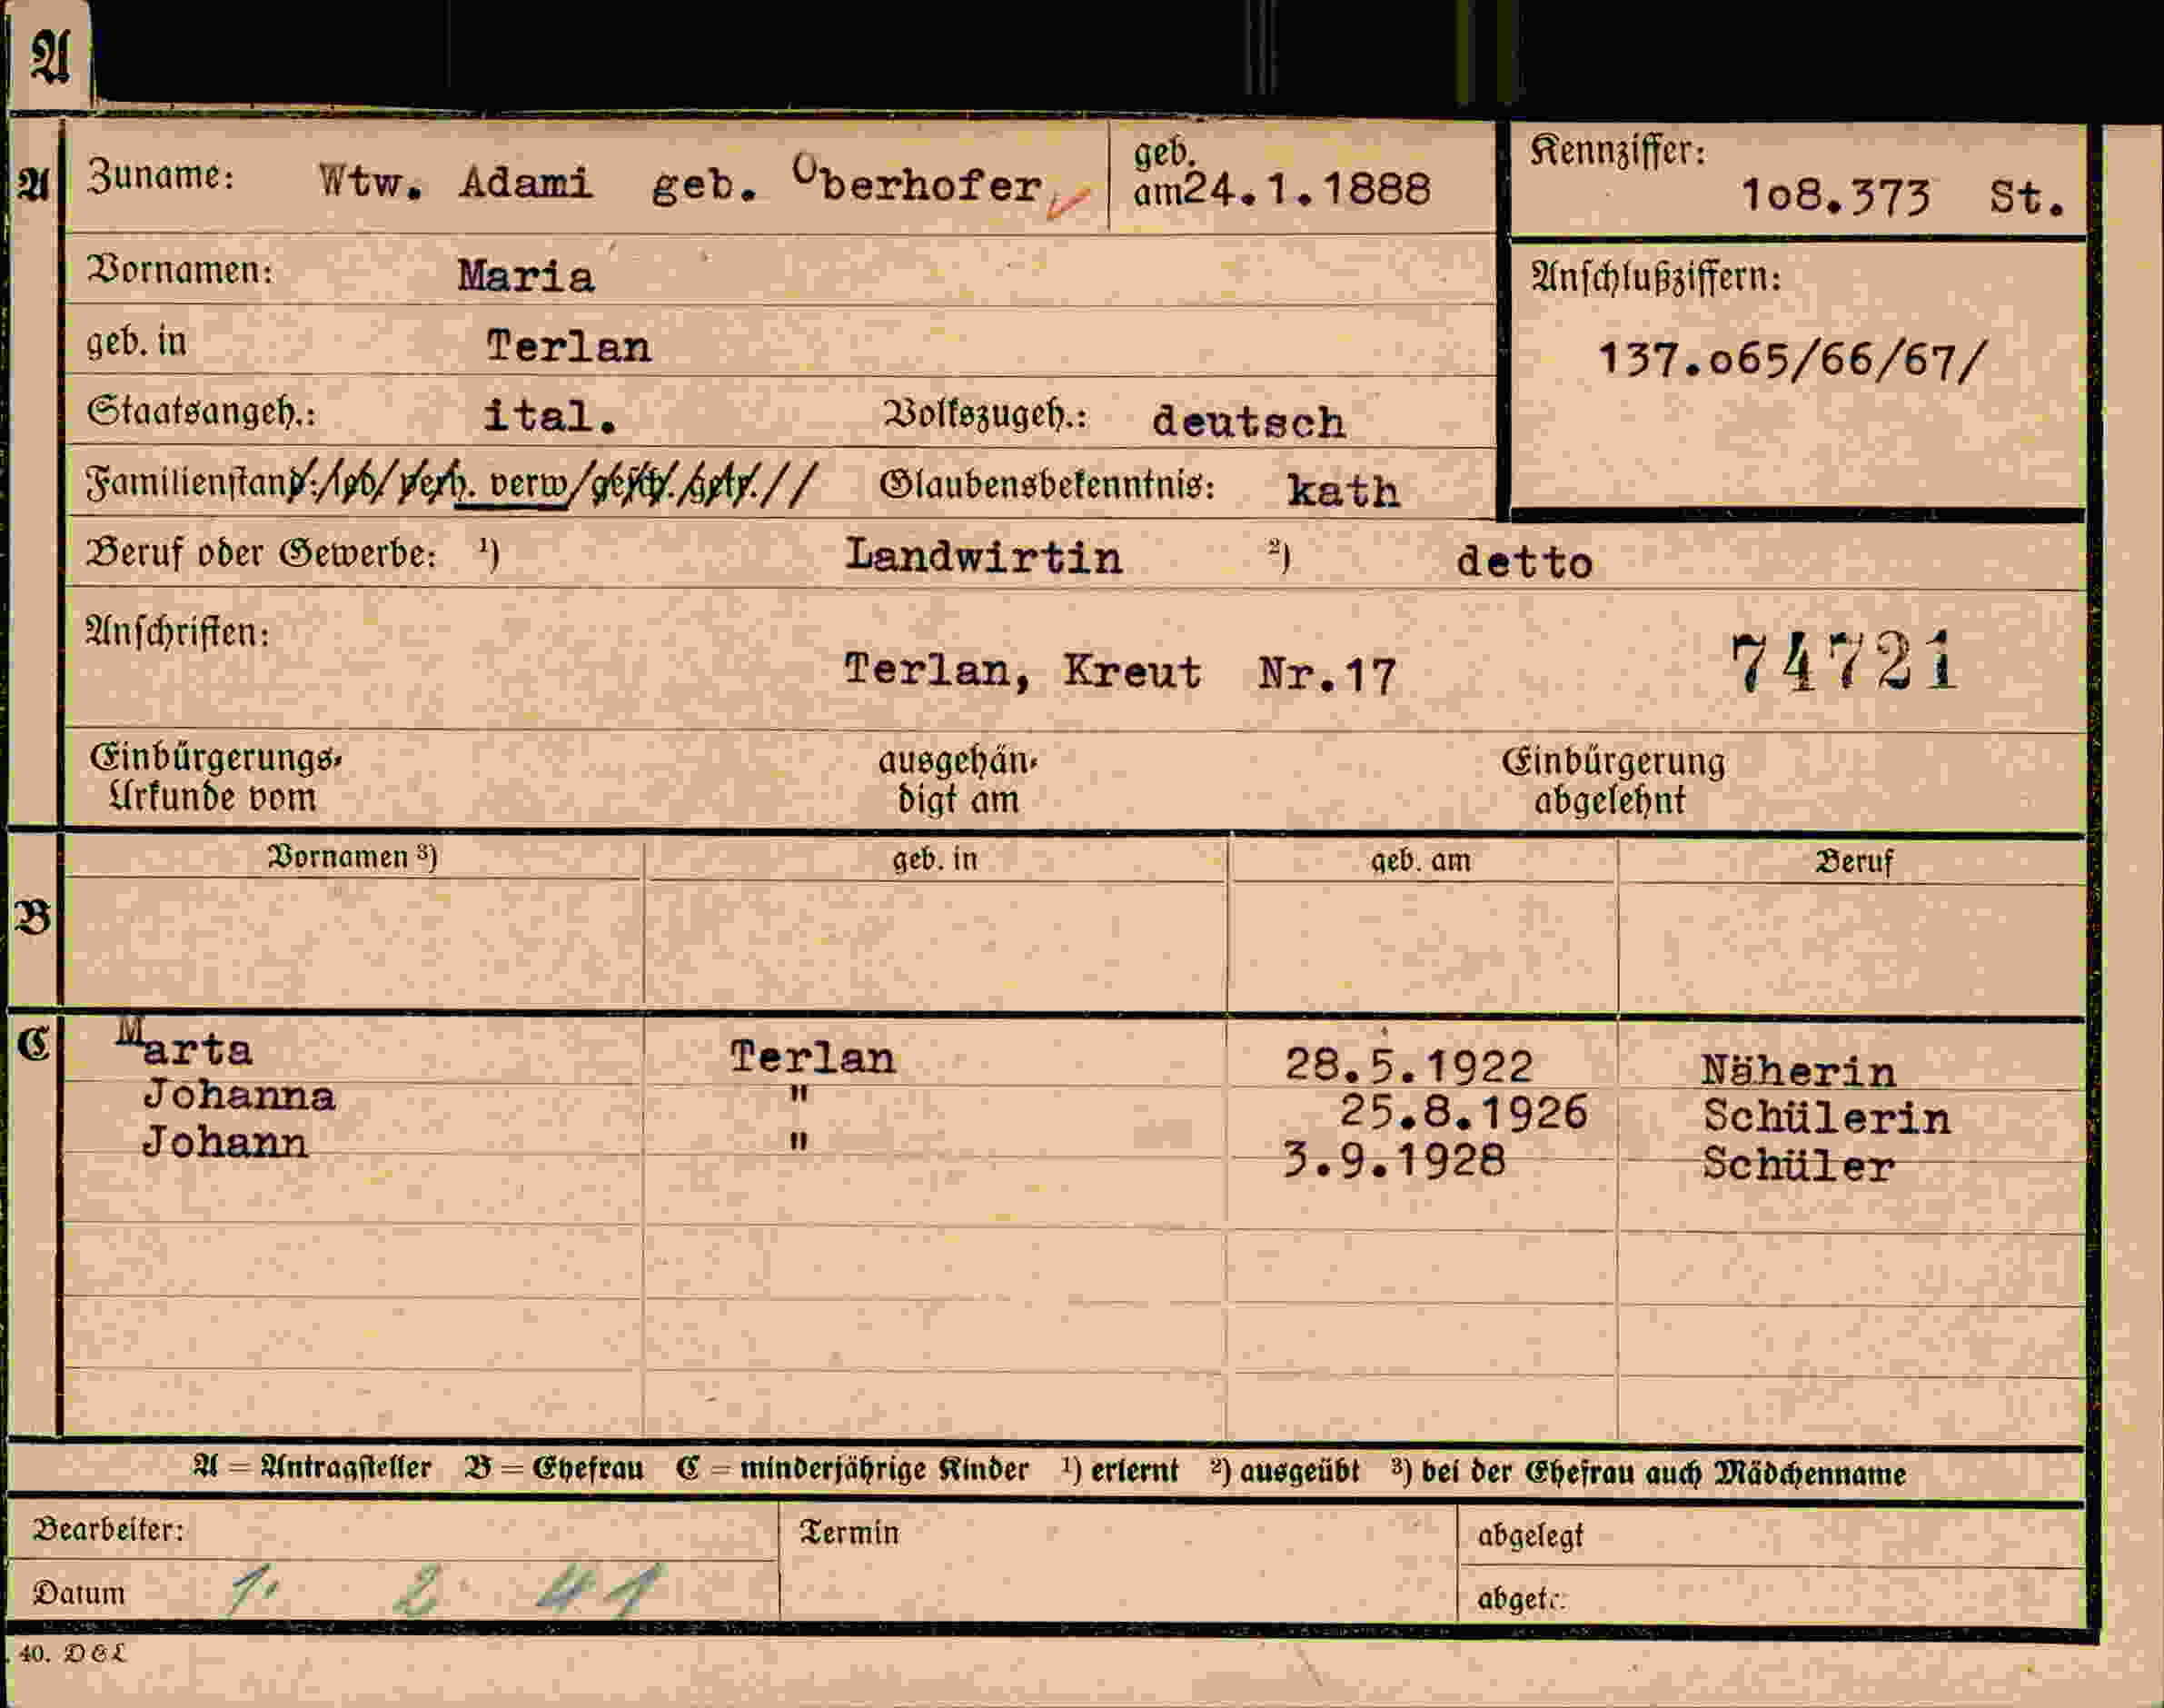 A
A Zuname: Wtw. Adami geb. Oberhofer geb. am 24.1.1888 Kennziffer: 1o8.373 St.
Vornamen: Maria Anschlußziffern:
geb. in Terlan 137.o65/66/67/
Staatsangeh.: ital. Volkszugeh.: deutsch
Familienstand: led/ verh. verw/gesch./getr.// Glaubensbekenntnis: kath
Beruf oder Gewerbe: ¹) Landwirtin ²) detto
Anschriften:
Terlan, Kreut Nr.17 74721
Einbürgerungs- ausgehän- Einbürgerung
Urkunde vom digt am abgelehnt
Vornamen ³) geb. in geb. am Beruf
B
C Marta Terlan 28.5.1922 Näherin
Johanna " 25.8.1926 Schülerin
Johann " 3.9.1928 Schüler
A = Antragsteller B = Ehefrau C = minderjährige Kinder ¹) erlernt ²) ausgeübt ³) bei der Ehefrau auch Mädchenname
Bearbeiter: Termin abgelegt
Datum 1. 2 41 abgetr.
40. D&L